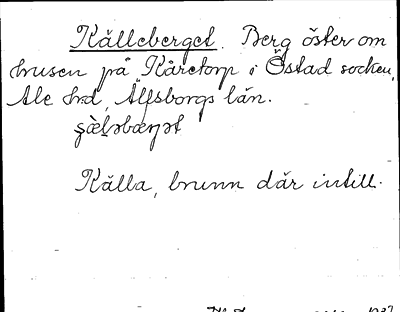 Källeberget. Berg öster om
husen på Kåretorp i Östad socken,
Ale hd, Älfsborgs län.
Källa, brunn där intill.